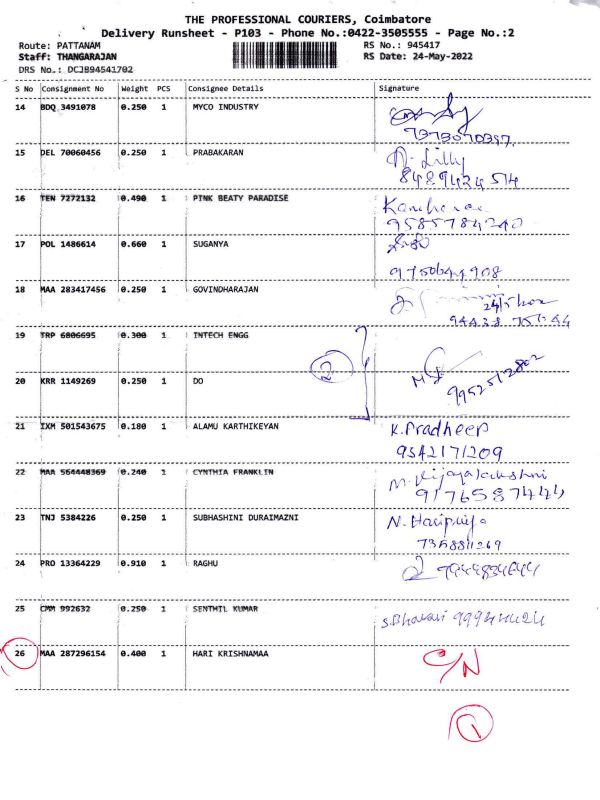 THE PROFESSIONAL COURIERS, Coimbatore
Delivery Runsheet - P103 - Phone No.:0422-3505555 - Page No.:2
Route: PATTANAM RS No.: 945417
Staff: THANGARAJAN RS Date: 24-May-2022
DRS No.: DCJB94541702
S No Consignment No Weight PCS Consignee Details Signature
14 BDQ 3491078 0.250 1 MYCO INDUSTRY
15 DEL 70060456 0.250 1 PRABAKARAN
8489424514
16 TEN 7272132 0.490 1 PINK BEATY PARADISE
9585784240
17 POL 1486614 0.660 1 SUGANYA
9750644908
18 MAA 283417456 0.250 1 GOVINDHARAJAN
19 TRP 6806695 0.300 1 INTECH ENGG
2
20 KRR 1149269 0.250 1 DO
9952512802
21 IXM 501543675 0.180 1 ALAMU KARTHIKEYAN K.Pradheep
9342171209
22 MAA 564448369 0.240 1 CYNTHIA FRANKLIN M.Vijayalakshmi
9176587444
23 TNJ 5384226 0.250 1 SUBHASHINI DURAIMAZNI N. Haripriya
7358811269
24 PRO 13364229 0.910 1 RAGHU
25 CMM 992632 0.250 1 SENTHIL KUMAR
26 MAA 287296154 0.400 1 HARI KRISHNAMAA C/N
1